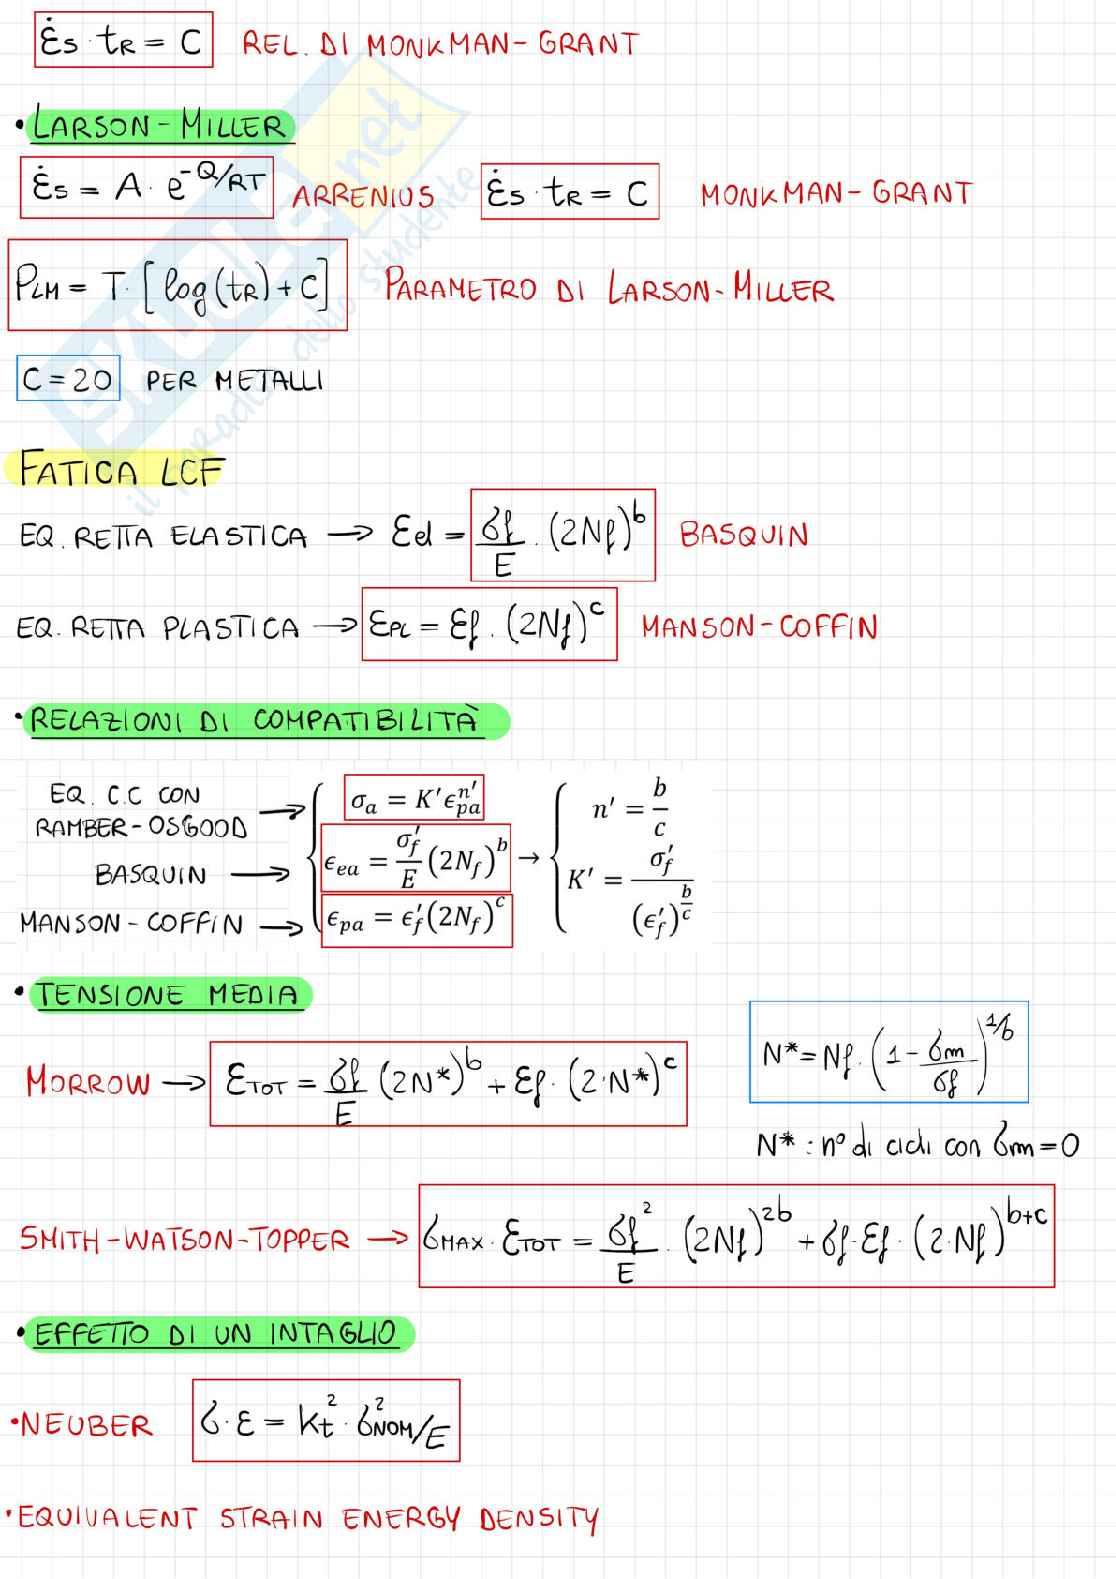 ε̇s · tR = C REL. DI MONKMAN-GRANT
• LARSON-MILLER
ε̇s = A · e^-Q/RT ARRENIUS ε̇s · tR = C MONKMAN-GRANT
PLM = T · [log(tR) + C] PARAMETRO DI LARSON-MILLER
C = 20 PER METALLI
FATICA LCF
EQ. RETTA ELASTICA → εel = σf/E · (2Nf)^b BASQUIN
EQ. RETTA PLASTICA → εPL = εf · (2Nf)^c MANSON-COFFIN
• RELAZIONI DI COMPATIBILITÀ
EQ. C.C CON RAMBER-OSGOOD → σa = K'ϵpa^n' → n' = b/c
BASQUIN → ϵea = σ'f/E (2Nf)^b K' = σ'f/(ϵ'f)^b/c
MANSON-COFFIN → ϵpa = ϵ'f(2Nf)^c
• TENSIONE MEDIA
MORROW → εTOT = σf/E (2N*)^b + εf · (2·N*)^c N* = Nf · (1 - σm/σf)^1/b
N* : n° di cicli con σm = 0
SMITH-WATSON-TOPPER → σMAX · εTOT = σf²/E · (2Nf)^2b + σf · εf · (2·Nf)^b+c
• EFFETTO DI UN INTAGLIO
• NEUBER σ · ε = Kt² · σ²NOM/E
• EQUIVALENT STRAIN ENERGY DENSITY
SKUOLA.net
il paradiso dello studente